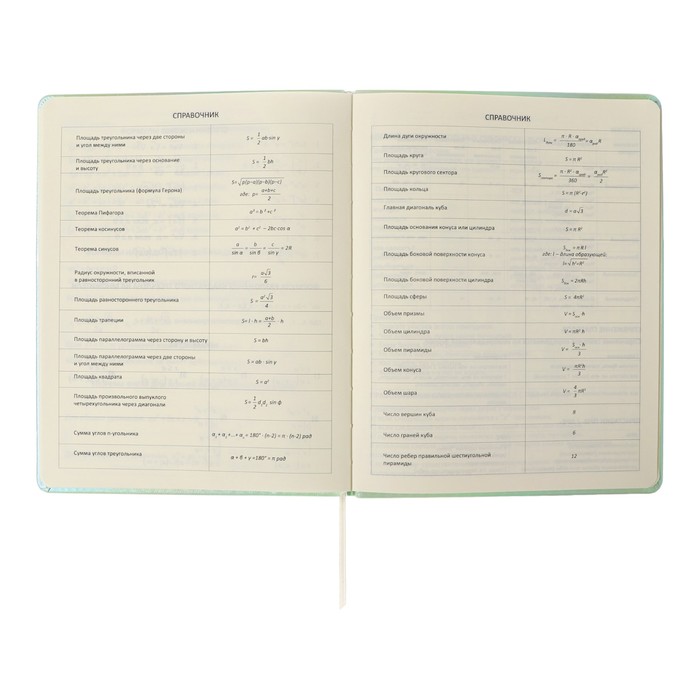 СПРАВОЧНИК
Площадь треугольника через две стороны
и угол между ними
S = 1/2 ab·sin γ
Площадь треугольника через основание
и высоту
S = 1/2 bh
Площадь треугольника (формула Герона)
S=√p(p−a)(p−b)(p−c)
где: p= a+b+c/2
Теорема Пифагора
a² = b² + c²
Теорема косинусов
a² = b² + c² − 2bc·cos α
Теорема синусов
a/sin α = b/sin β = c/sin γ = 2R
Радиус окружности, вписанной
в равносторонний треугольник
r= a√3/6
Площадь равностороннего треугольника
S= a²√3/4
Площадь трапеции
S= l · h = a+b/2 · h
Площадь параллелограмма через сторону и высоту
S = bh
Площадь параллелограмма через две стороны
и угол между ними
S = ab · sin γ
Площадь квадрата
S = a²
Площадь произвольного выпуклого
четырехугольника через диагонали
S= 1/2 d₁d₂ sin ф
Сумма углов n-угольника
α₁ + α₂+...+ αₙ= 180° · (n-2) = π · (n-2) рад
Сумма углов треугольника
α + β + γ =180° = π рад
СПРАВОЧНИК
Длина дуги окружности
Площадь круга
S = π R²
Площадь кругового сектора
Площадь кольца
S = π (R²-r²)
Главная диагональ куба
d = a√3
Площадь основания конуса или цилиндра
S = π R²
Площадь боковой поверхности конуса
Sбок = π R l
где: l – длина образующей;
l=√h²+R²
Площадь боковой поверхности цилиндра
Sбок = 2πRh
Площадь сферы
S = 4πR²
Объем призмы
V = Sосн h
Объем цилиндра
V = πR² h
Объем пирамиды
V = Sосн h/3
Объем конуса
V = πR²h/3
Объем шара
V = 4/3 πR³
Число вершин куба
8
Число граней куба
6
Число ребер правильной шестиугольной
пирамиды
12